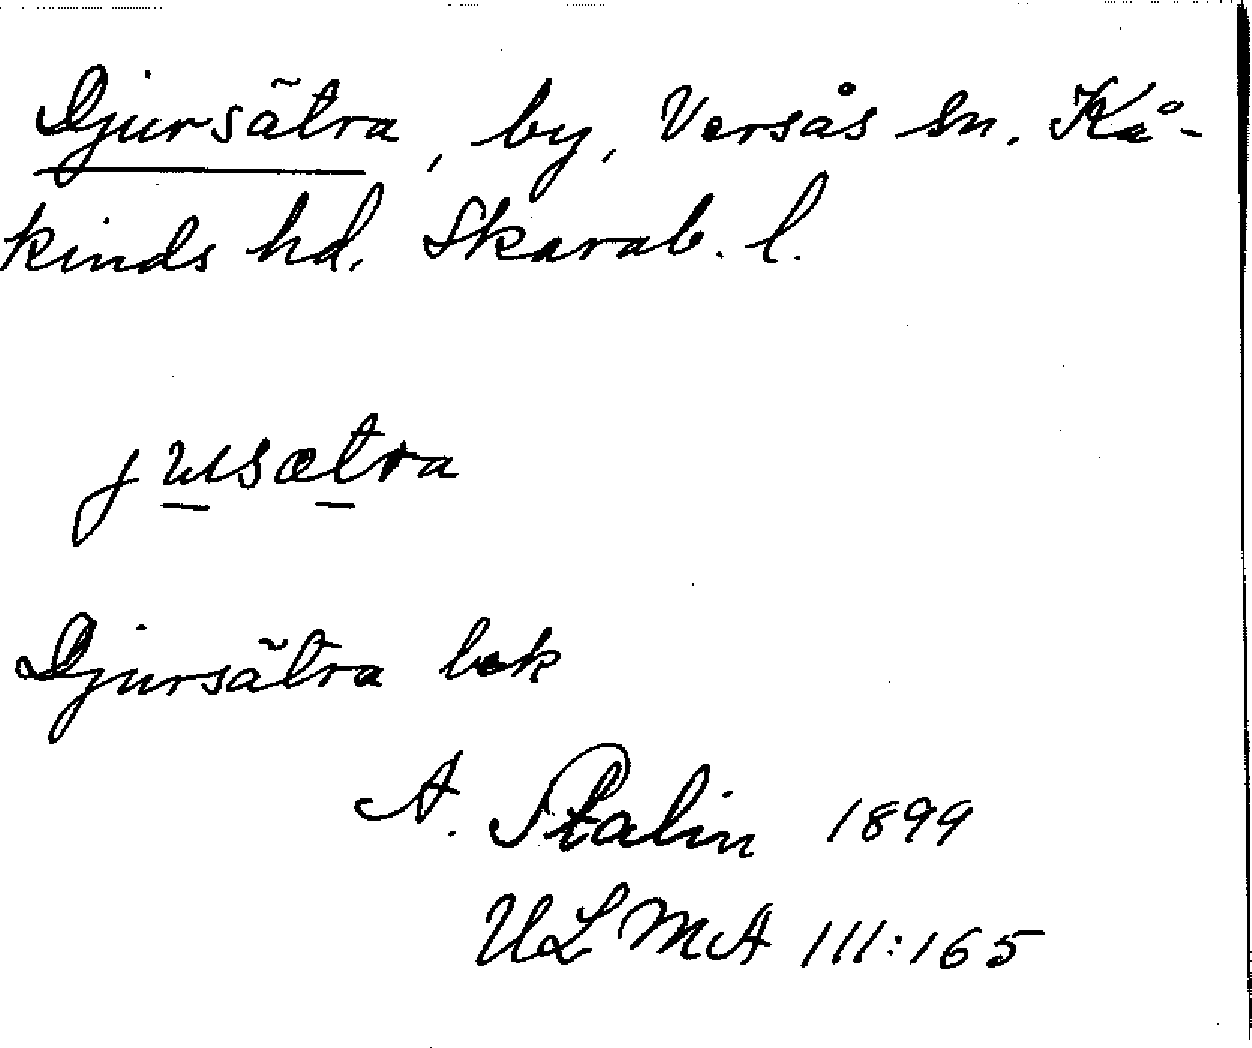 Djursätra, by, Versås sn. Kå-
kinds hd. Skarab. l.
jusætra
Djursätra bek
A. Stalin 1899
ULMA 111:165